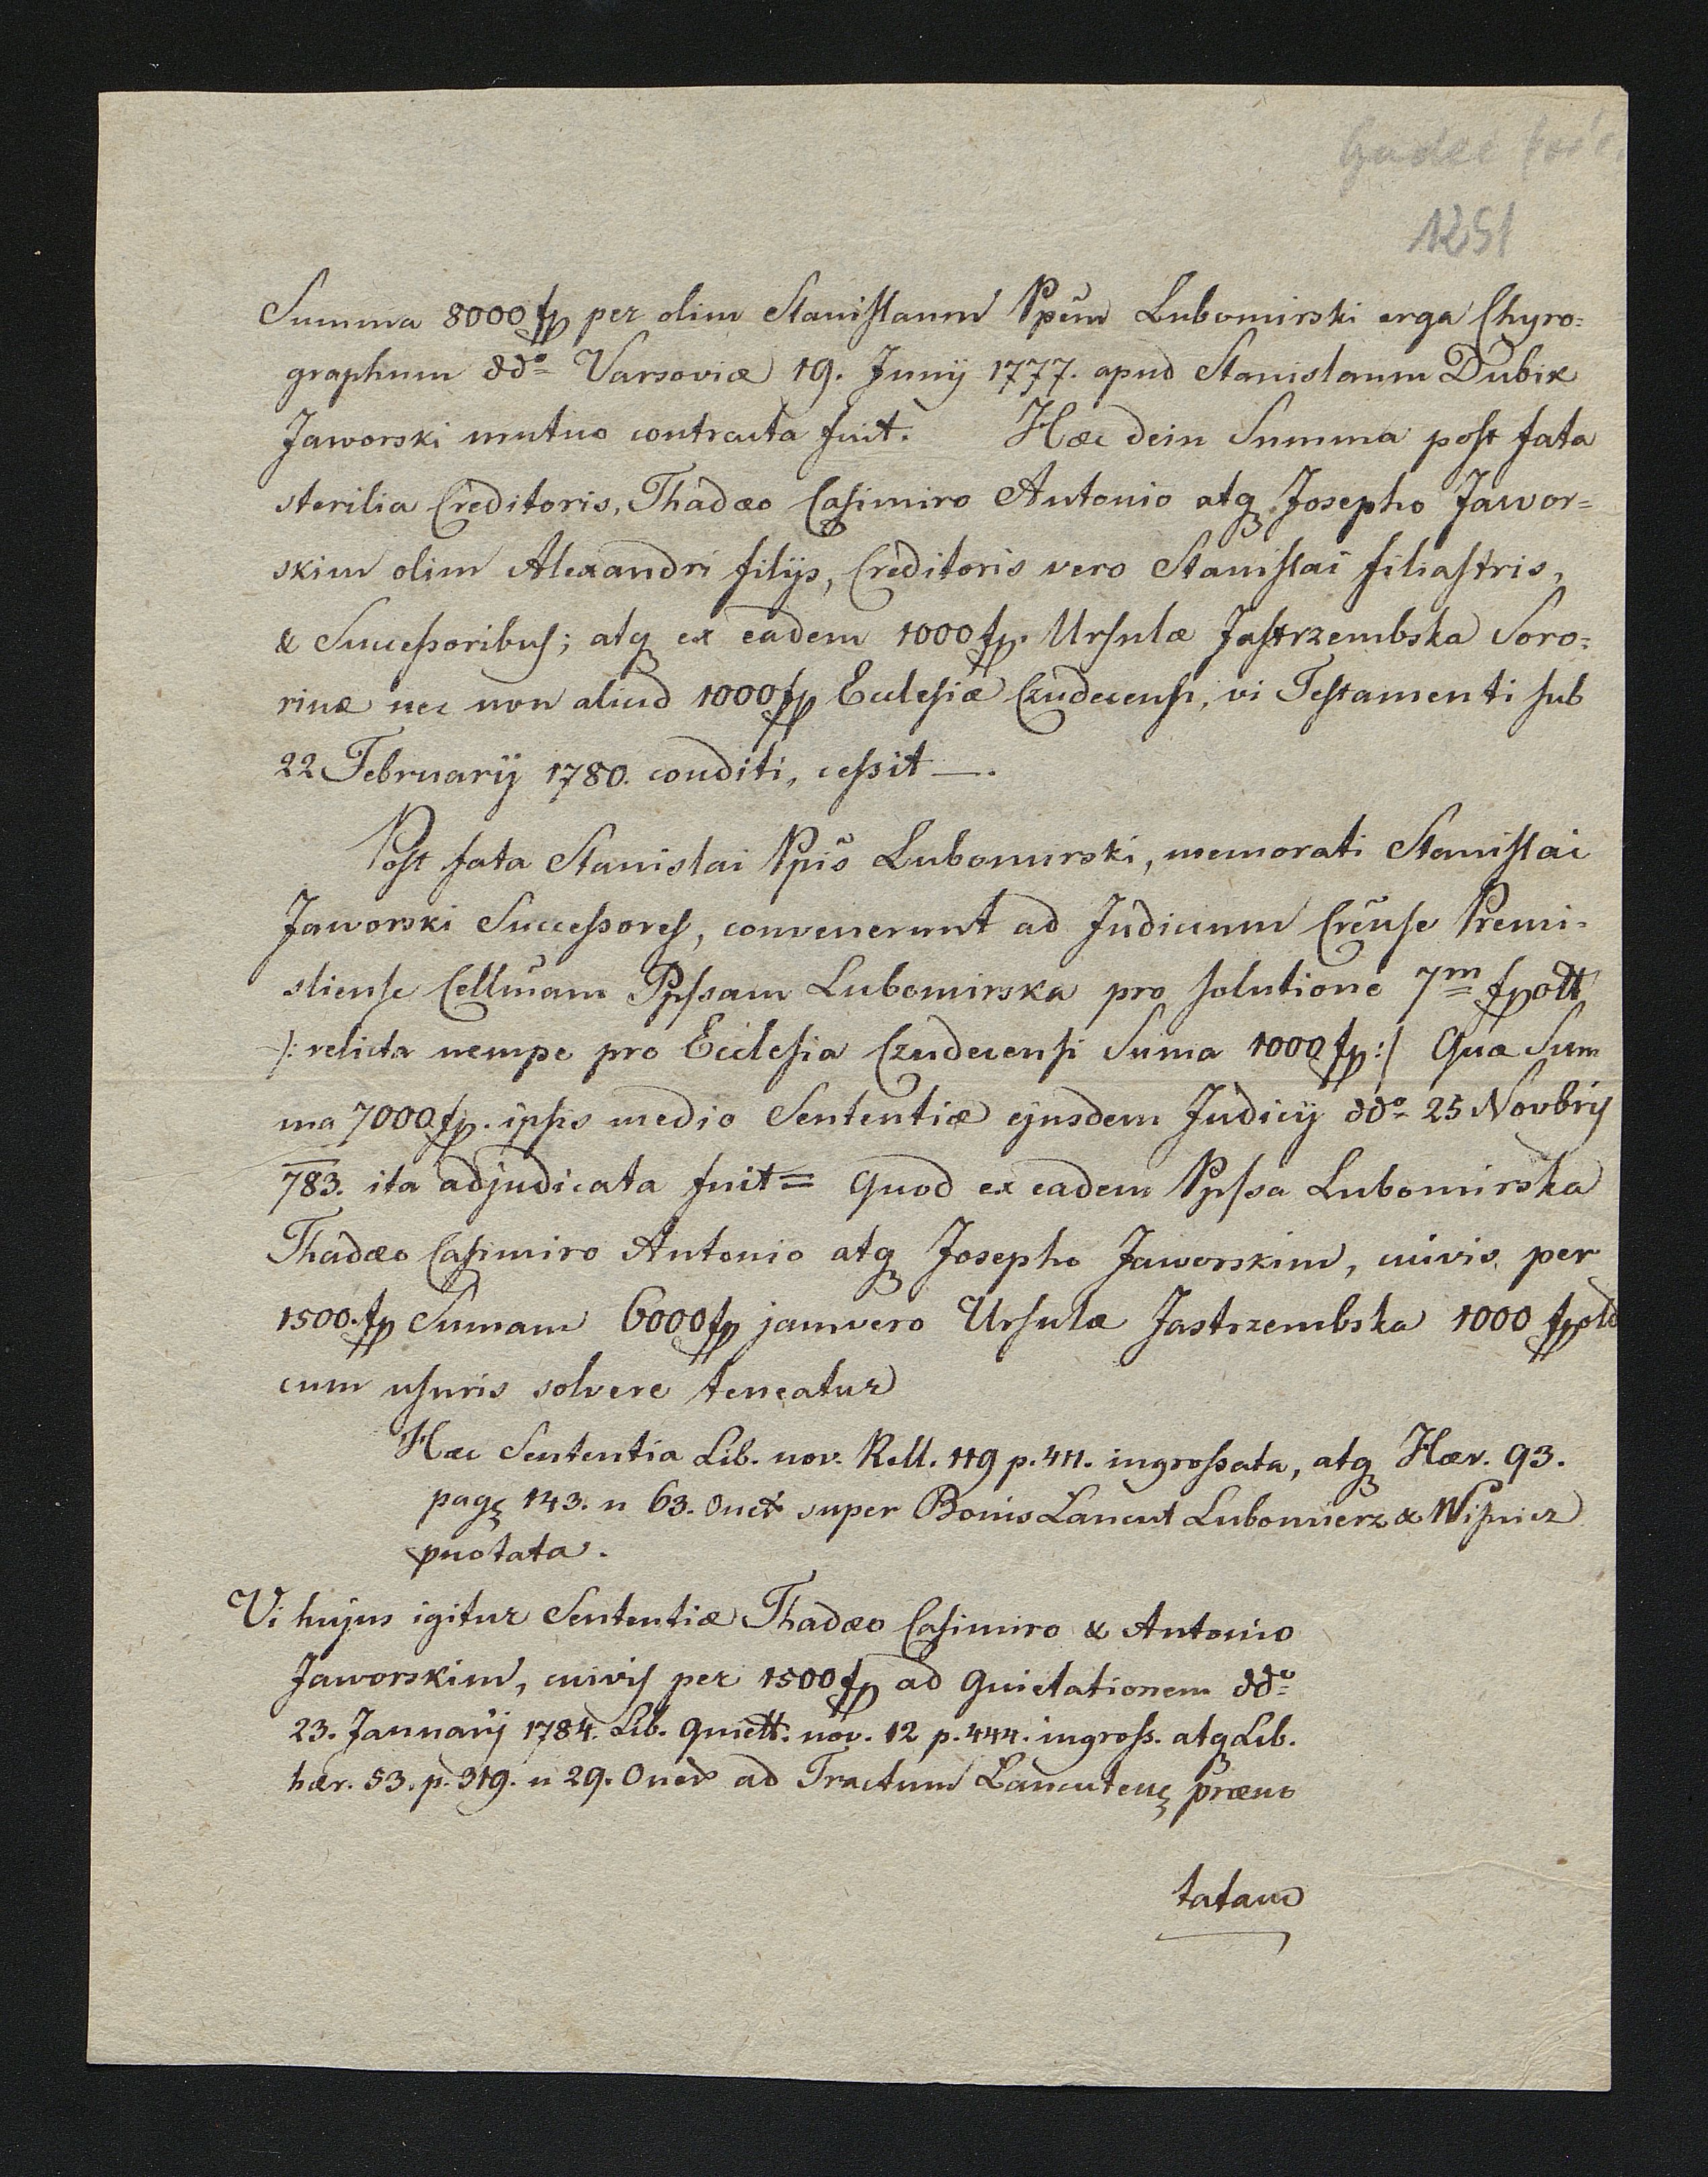 1251
Summa 8000 fp per olim Stanislaum Ppem Lubomirski erga Chyro=
graphum ddo Varsoviæ 19. Junij 1777. apud Stanislaum Dubix
Jaworski mutuo contracta fuit. Hæc dein Summa post fata
sterilia Creditoris, Thadæo Casimiro Antonio atq Josepho Jawor=
skim olim Alexandri filijs, Creditoris vero Stanislai filiastris,
& Successoribus; atq ex eadem 1000 fp. Ursulæ Jastrzembska Soro=
rinæ nec non aliud 1000 fp Ecclesiæ Czudecensi, vi Testamenti sub
22 Februarij 1780. conditi, cessit —.
Post fata Stanislai Ppis Lubomirski, memorati Stanislai
Jaworski Successores, convenerunt ad Judicium Crense Premi=
sliense Cellmam Ppssam Lubomirska pro solutione 7m fpoll
/: relicta nempe pro Ecclesia Czudecensi Suma 1000 fp :/ Quæ Sum
ma 7000 fp. ipsis medio Sententiæ ejusdem Judicij ddo 25 Novbris
783. ita adjudicata fuit = quod ex eadem Ppssa Lubomirska
Thadæo Casimiro Antonio atq Josepho Jaworskim, cuivis per
1500. fp Sumam 6000 fp jamvero Ursulæ Jastrzembska 1000 fpold
cum usuris solvere teneatur
Hæc Sententia Lib. nov. Rell. 119 p. 411. ingrossata, atq Hær. 93.
pag 143. n 63. Oner super Bonis Lancut Lubomierz & Wisnicz
pnotata.
Vi hujus igitur Sententiæ Thadæo Casimiro & Antonio
Jaworskim, cuivis per 1500 fp ad Quietationem ddo
23. Januarij 1784. Lib. Quiett. nov. 12 p. 444. ingross. atq Lib.
hær. 53. p. 319. n 29. Oner ad Tractum Lancutens præno
tatam